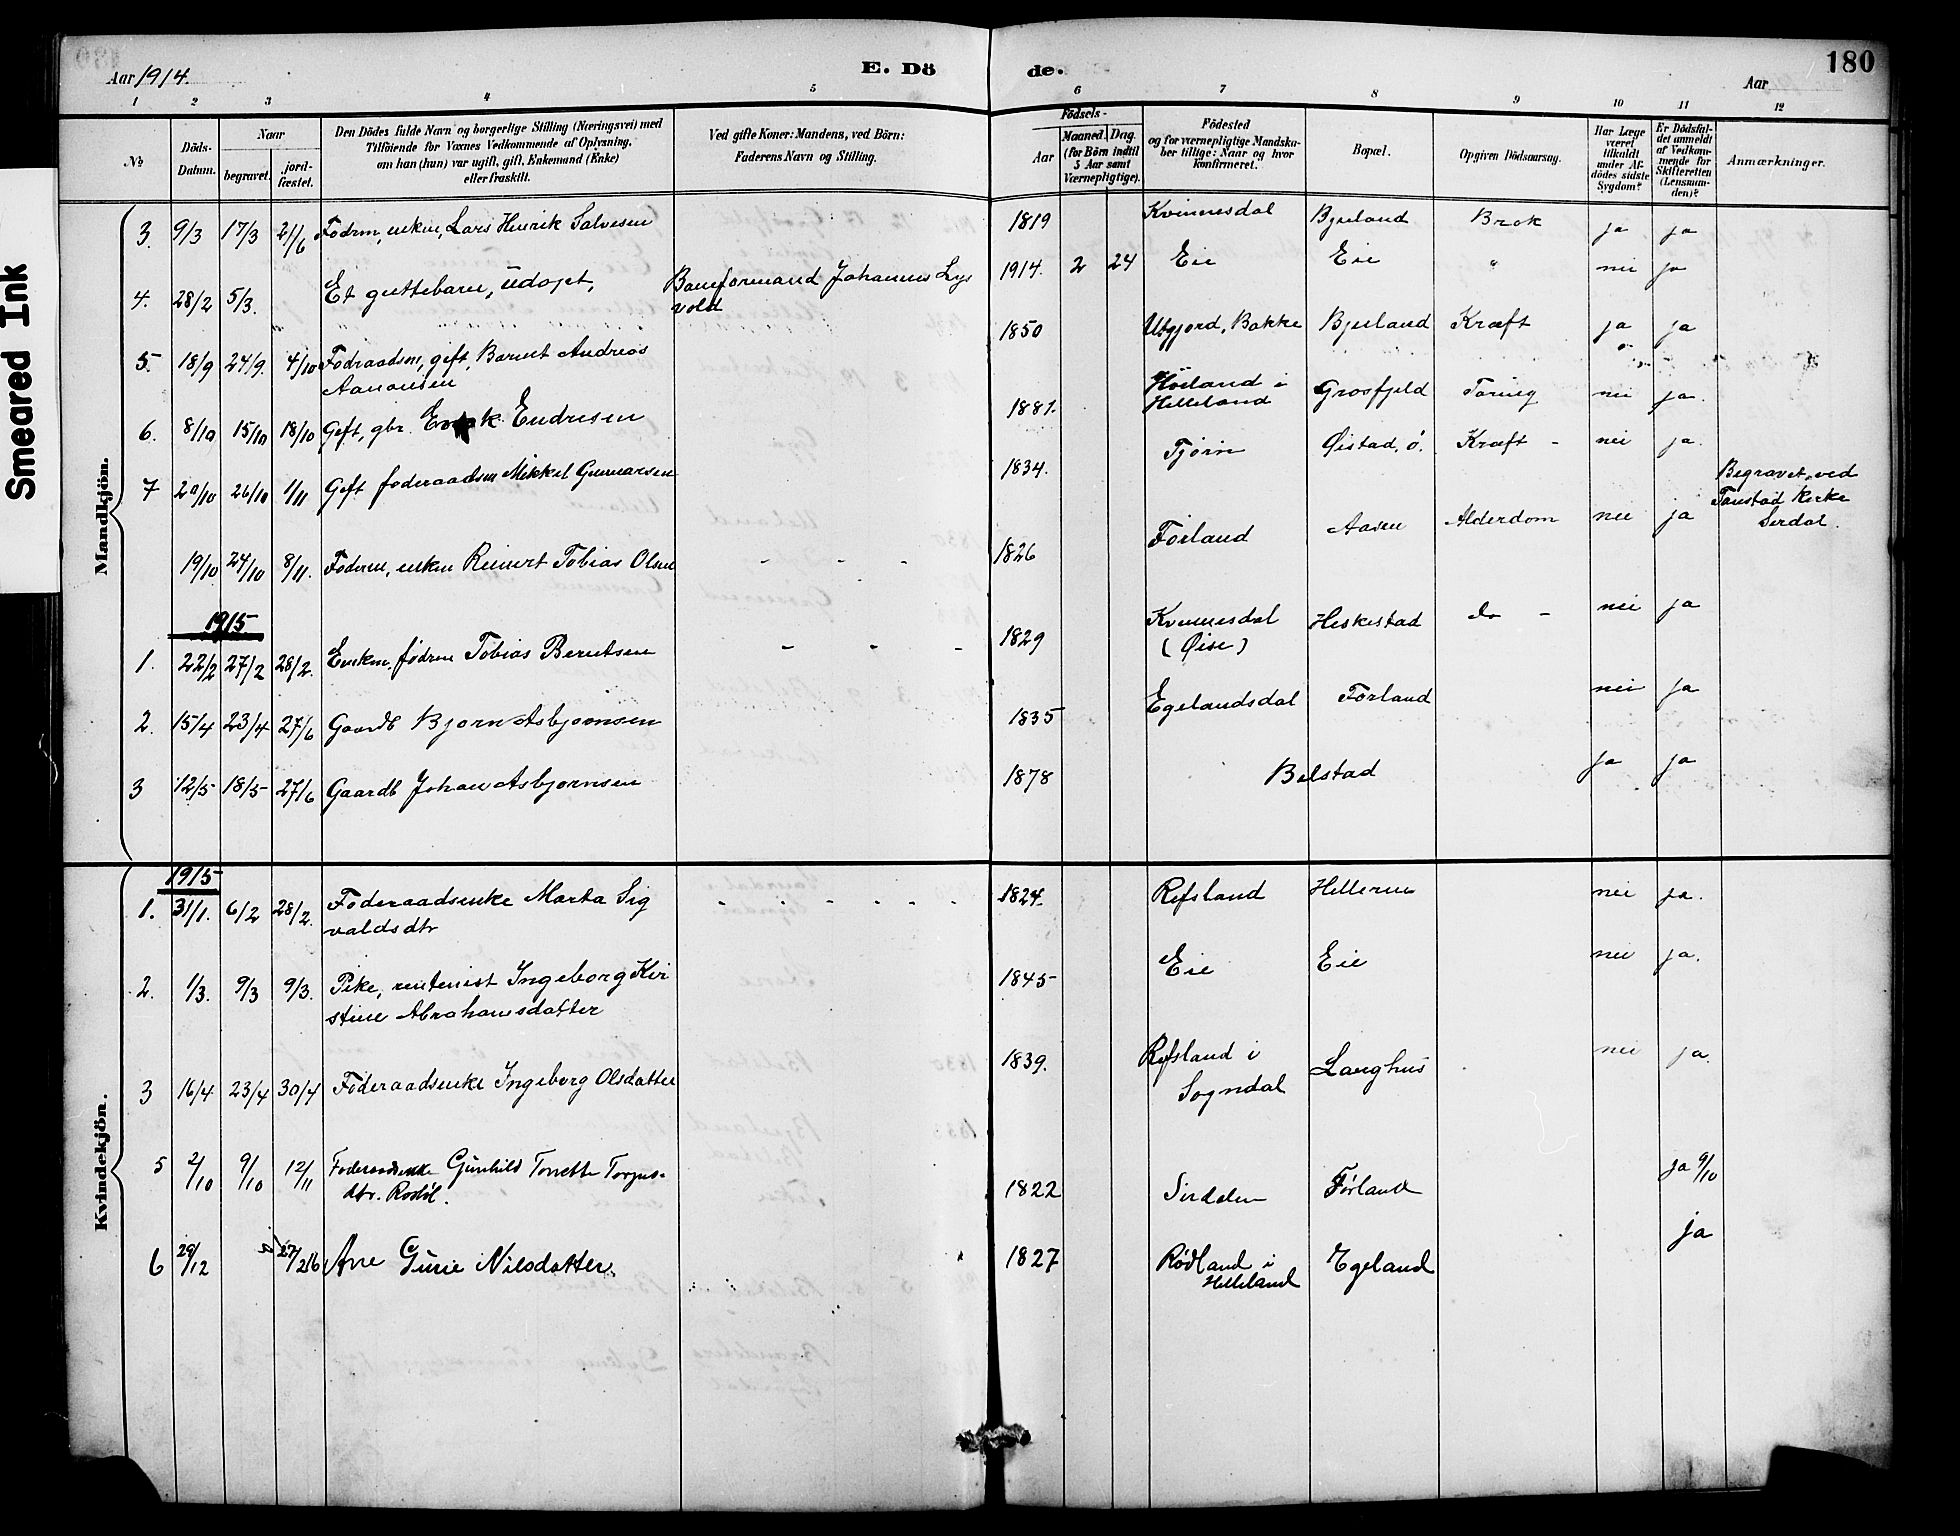 Smeared Ink
Aar 1914.
E. Dö
de.
Aar
180
1 2 3 4 5 6 7 8 9 10 11 12
No
Döds-
Datum.
Naar
begravet.
jord-
fæstet.
Den Dödes fulde Navn og borgerlige Stilling (Næringsvei) med
Tilföiende for Voxnes Vedkommende af Oplysning,
om han (hun) var ugift, gift, Enkemand (Enke)
eller fraskilt.
Ved gifte Koner: Mandens, ved Börn:
Faderens Navn og Stilling.
Födsels-
Aar
Maaned.
Dag.
(for Börn indtil
5 Aar samt
Værnepligtige).
Födested
og for værnepligtige Mandska-
ber tillige: Naar og hvor
konfirmeret.
Bopæl.
Opgiven Dödsaarsag.
Har Læge
været
tilkaldt
under Af-
dödes sidste
Sygdom?
Er Dödsfal-
det anmeldt
af Vedkom-
mende for
Skifteretten
(Lensman-
den)?
Anmærkninger.
Mandkjön.
3. 9/3 17/3 21/6 Födrm, enkm, Lars Henrik Salvesen 1819 Kvinnesdal Bjuland Brok ja ja
4. 28/2 5/3. Et guttebarn, udöpt, Baneformand Johannes Lys 1914. 2 24 Eie Eie " nei ja
vold
5. 18/9 24/9. 4/10 Födraadsm, gift, Barent Andreas 1850 Utgjord, Bakke Bjuland Kræft ja ja
Aanonsen
6. 8/10 15/10 18/10 Gift, gbr. Endresen 1881. Höiland i Grosfjeld Tæring nei ja.
Helleland
7 20/10 26/10 1/11 Gift foderaadsm Mikkel Gunnarsen 1834. Tjörn Øistad, ö. Kræft - nei ja.
Begravet ved
Tonstad Kirke
Sirdal.
19/10. 24/10 8/11. Föderm, enkm Reinert Tobias Olsen - - - 1826 Förland Aasen Alderdom nei ja
1915
1. 22/2 27/2 28/2. Enkm. födrm Tobias Berntsen - - - 1829 Kvinnesdal Heskestad do - nei ja
(Øise)
2. 15/4 23/4 27/6 Gaardb Bjorn Asbjornsen 1835 Egelandsdal Förland nei ja
3 12/5 18/5 27/6 Gaardb Johan Asbjornsen 1878 Belstad ja ja
Kvindekjön.
1915
1. 31/1. 6/2 28/2. Föderaadsenke Marta Sig - - - - - - 1824. Refsland Helleren nei ja.
valdsdtr
2. 1/3. 9/3 9/3. Pike, rentenist Ingeborg Kri 1845 Eie Eie nei ja.
stine Abrahamsdatter
3 16/4 23/4 30/4 Föderaadsenke Ingeborg Olsdatter 1839. Refsland i Langhus nei ja.
Sogndal
5 2/10 9/10 12/11 Foderaadsenke Gunhild Tonette Torjus- 1822 Sirdalen Förland ja 9/10
dtr. Rosöl.
6 29/12 27/2 16 Ane Gurie Nilsdatter. 1827 Rödland i Egeland ja
Helleland